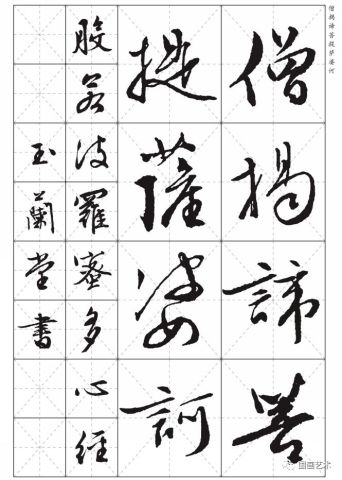 僧揭谛菩提萨婆诃
僧揭諦菩
提薩婆訶
般若波羅蜜多心經
玉蘭堂書
国画艺术